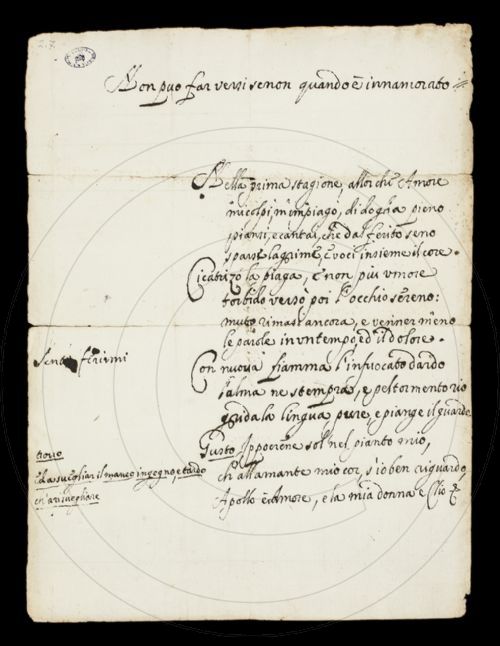 Non puo far versi se non quando è innamorato
Nella prima stagione, allor che Amore
mi colpì, m'impiagò, di doglia pieno
piansi, e cantai, che dal ferito seno
sparse lagrime, e voci insieme il core.
Cicatrizò la piaga, e non più umore
torbido versò poi l'occhio sereno:
muto rimasi ancora, e venner meno
le parole in un tempo, ed il dolore.
Con nuova fiamma l'infocato dardo
l'alma ne stempra, e pel tormento rio
grida la lingua pure, e piange il guardo
Gusto Ippocrene sol nel pianto mio,
ch'all'amante mio cor, s'io ben riguardo,
Apollo è Amore, e la mia donna è Clio
ferirmi
trovo
il manco ingegno, e tardo